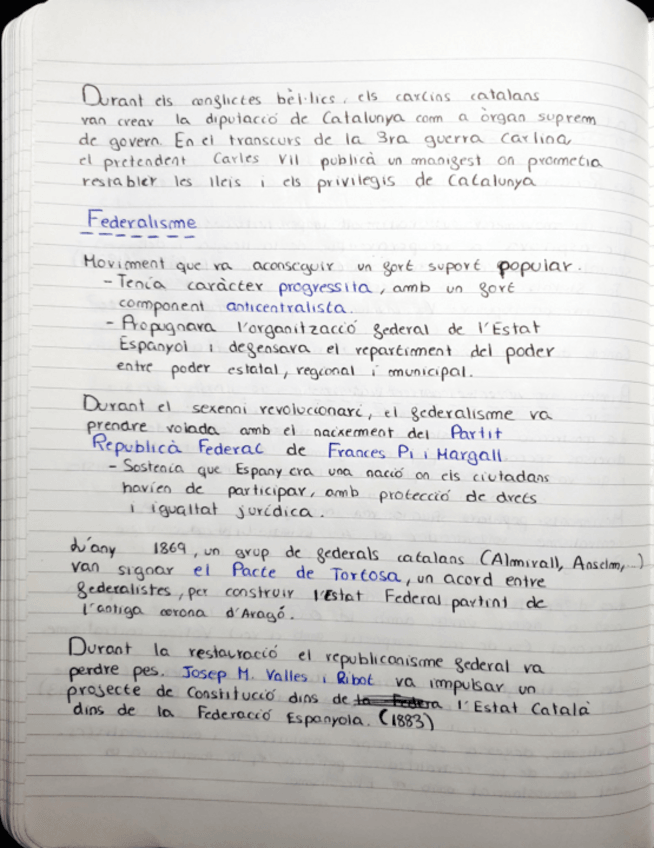 Durant els conflictes bèl·lics, els carlins catalans
van crear la diputació de Catalunya com a òrgan suprem
de govern. En el transcurs de la 3ra guerra Carlina,
el pretendent Carles VII publicà un manifest on prometia
restabler les lleis i els privilegis de Catalunya
Federalisme
Moviment que va aconseguir un fort suport popular.
- Tenia caràcter progressita, amb un fort
component anticentralista.
- Propugnava l'organització federal de l'Estat
Espanyol i defensava el repartiment del poder
entre poder estatal, regional i municipal.
Durant el sexenni revolucionari, el federalisme va
prendre volada amb el naixement del Partit
Republicà Federal de Frances Pi i Margall
- Sostenia que Espany era una nació on els ciutadans
havien de participar, amb protecció de drets
i igualtat jurídica.
L'any 1869, un grup de federals catalans (Almirall, Anselm,..)
van signar el Pacte de Tortosa, un acord entre
federalistes, per construir l'Estat Federal partint de
l'antiga corona d'Aragó.
Durant la restauració el republicanisme federal va
perdre pes. Josep M. Valles i Ribot va impulsar un
projecte de Constitució dins de la Federa l'Estat Català
dins de la Federació Espanyola. (1883)